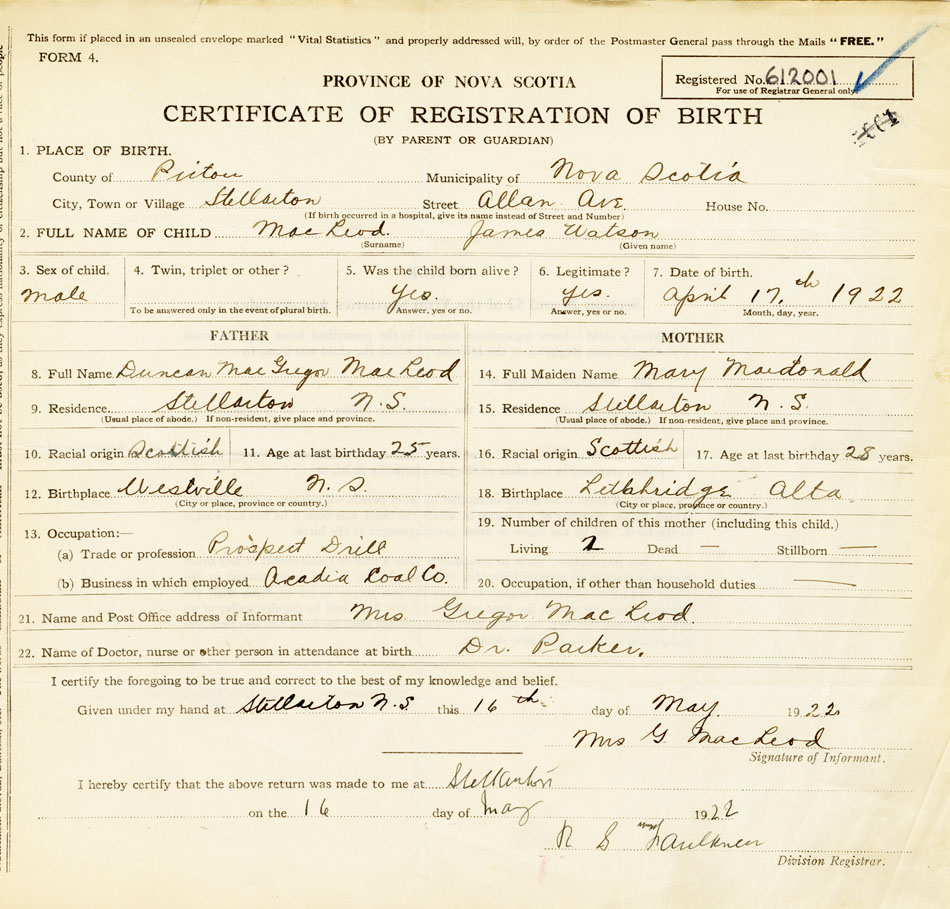 This form if placed in an unsealed envelope marked "Vital Statistics" and properly addressed will, by order of the Postmaster General pass through the Mails "FREE."
FORM 4.
Registered No. 612001
For use of Registrar General only
PROVINCE OF NOVA SCOTIA
CERTIFICATE OF REGISTRATION OF BIRTH
(BY PARENT OR GUARDIAN)
1. PLACE OF BIRTH.
County of Pictou Municipality of Nova Scotia
City, Town or Village Stellarton Street Allan Ave. House No.
(If birth occurred in a hospital, give its name instead of Street and Number)
2. FULL NAME OF CHILD MacLeod. James Watson
(Surname) (Given name)
3. Sex of child. 4. Twin, triplet or other? 5. Was the child born alive? 6. Legitimate? 7. Date of birth.
male yes. yes. April 17th 1922
To be answered only in the event of plural birth. Answer, yes or no. Answer, yes or no. Month, day, year.
FATHER MOTHER
8. Full Name Duncan MacGregor MacLeod 14. Full Maiden Name Mary Macdonald
9. Residence Stellarton N.S. 15. Residence Stellarton N.S.
(Usual place of abode.) If non-resident, give place and province. (Usual place of abode.) If non-resident, give place and province.
10. Racial origin Scottish 11. Age at last birthday 25 years. 16. Racial origin Scottish 17. Age at last birthday 28 years.
12. Birthplace Westville N.S. 18. Birthplace Lethbridge Alta.
(City or place, province or country.) (City or place, province or country.)
13. Occupation:— 19. Number of children of this mother (including this child.)
(a) Trade or profession Prospect Drill Living 2 Dead — Stillborn —
(b) Business in which employed Acadia Coal Co. 20. Occupation, if other than household duties —
21. Name and Post Office address of Informant Mrs Gregor MacLeod.
22. Name of Doctor, nurse or other person in attendance at birth Dr. Parker.
I certify the foregoing to be true and correct to the best of my knowledge and belief.
Given under my hand at Stellarton N.S this 16th day of May 1922
Mrs G MacLeod
Signature of Informant.
I hereby certify that the above return was made to me at Stellarton
on the 16 day of May 1922
R S Faulkner
Division Registrar.